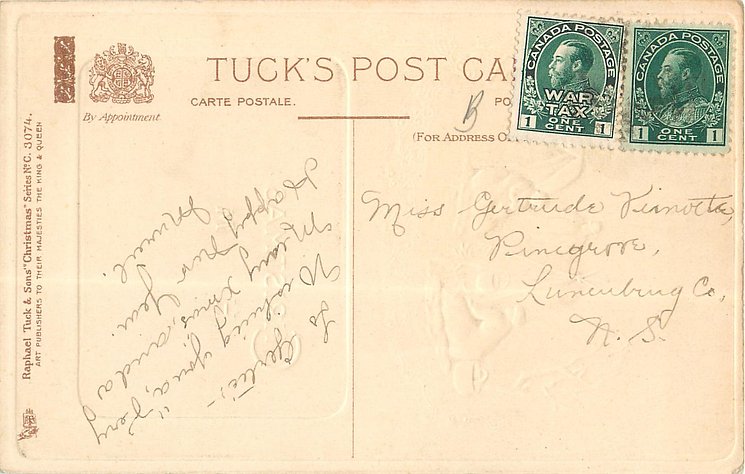 TUCK'S POST CA
CARTE POSTALE.
PO
(FOR ADDRESS O
By Appointment
Raphael Tuck & Sons' "Christmas" Series No. C. 3074.
ART PUBLISHERS TO THEIR MAJESTIES THE KING & QUEEN
CANADA POSTAGE
WAR
TAX
1 ONE 1
CENT
CANADA POSTAGE
1 ONE 1
CENT
B
Miss Gertrude
Pinegrove,
Lunenburg Co,
N. S.
To Gertie;-
Wishing you a "Very
Merry Xmas, and a
Happy New Year.
Minnie.